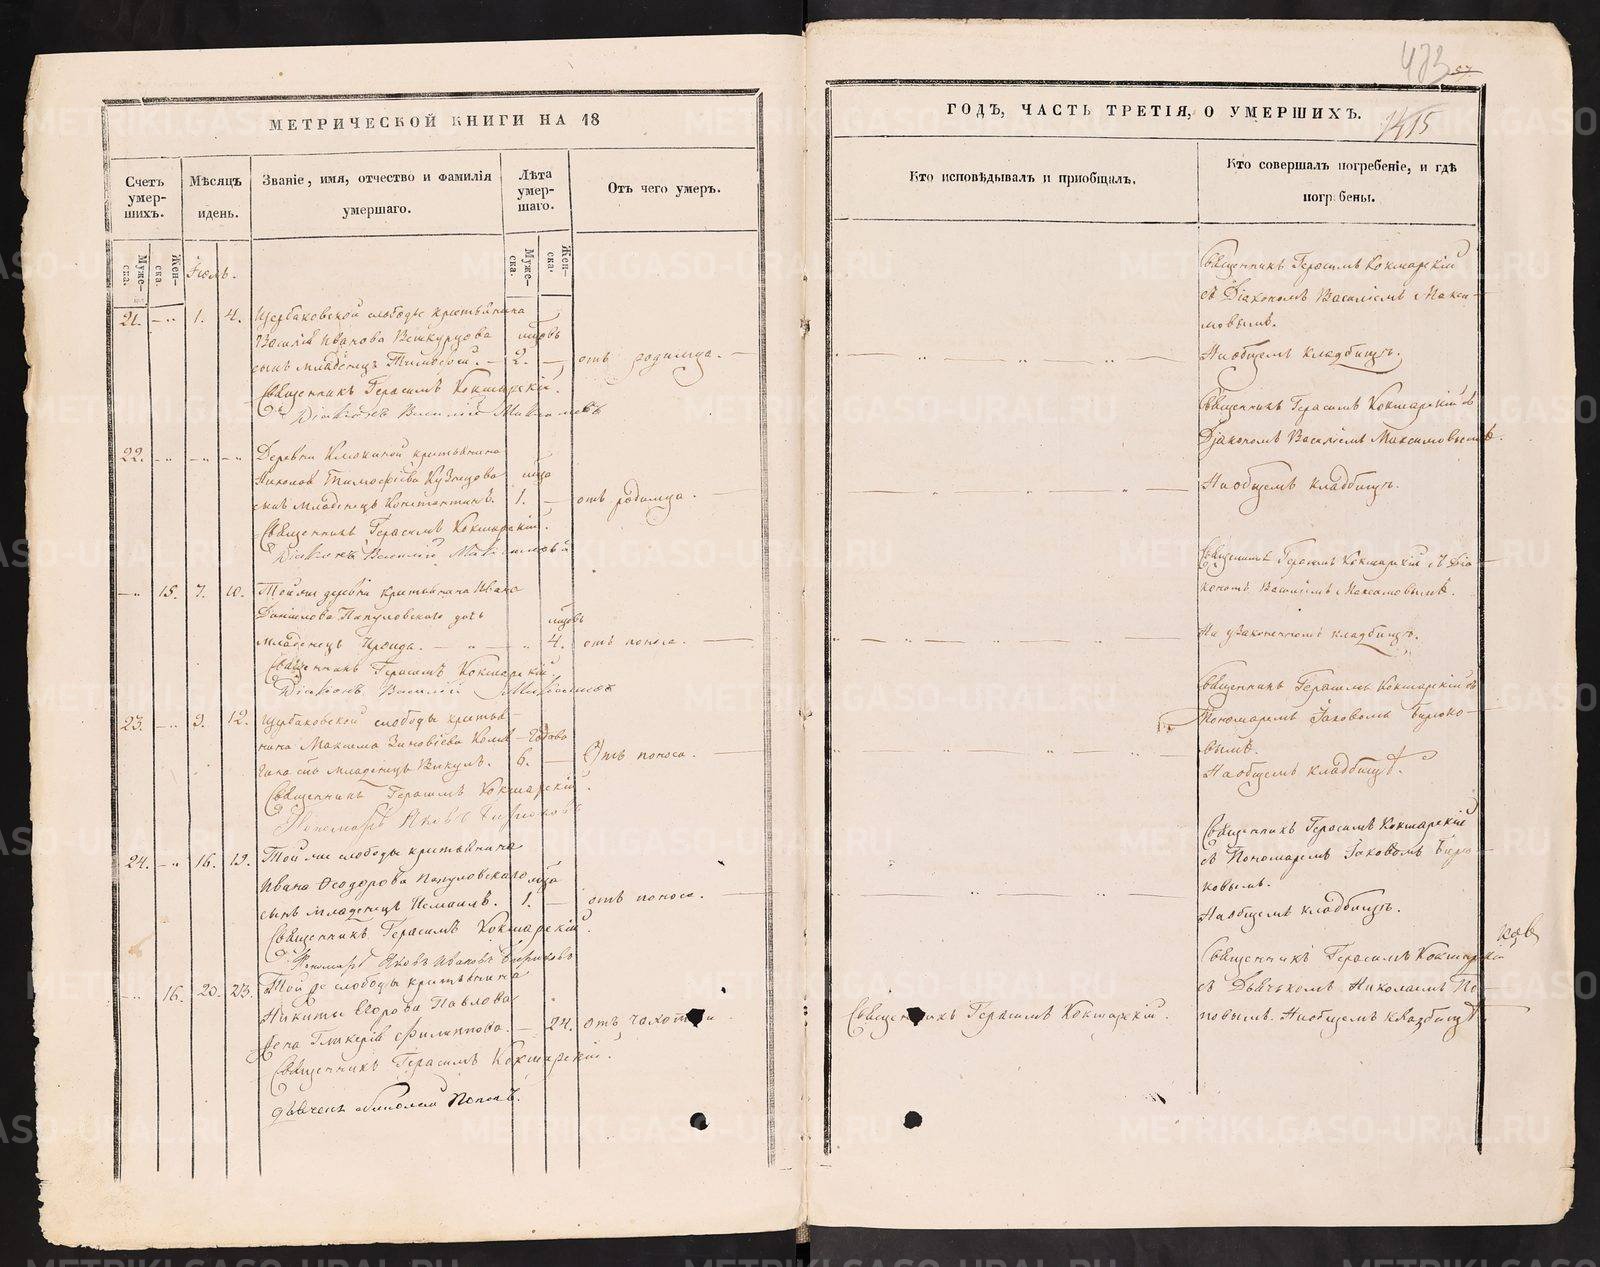 МЕТРИЧЕСКОЙ КНИГИ НА 18
Счетъ умер-шихъ.
Мѣсяцъ идень.
Званіе, имя, отчество и фамилія умершаго.
Лѣта умер-шаго.
Отъ чего умеръ.
Муже-ска.
Жен-ска.
Муже-ска.
Жен-ска.
Іюль.
21. 1. 4. Щербаковской слободы крестьянина
Василія Иванова
сынъ младенецъ Тимофей. 2. отъ родимца.
Священникъ Герасимъ Кокшарскій.
Діаконъ Василій Максимовъ
22. Деревни крестьянина
Тимофѣева Кузнецова
сынъ младенецъ Константинъ. 1. отъ родимца.
Священникъ Герасимъ Кокшарскій.
Діаконъ Василій Максимовъ
15. 7. 10. Тойже деревни крестьянина Ивана
Данилова Папуловскаго дочь
младенецъ 4. отъ поноса.
Священникъ Герасимъ Кокшарскій
Діаконъ Василій Максимовъ
23. 9. 12. Щербаковской слободы крестья-
нина Максима Зиновіева
сынъ младенецъ Викулъ. 6. Отъ поноса.
Священникъ Герасимъ Кокшарскій.
Пономарь Яковъ Бирюковъ
24. 16. 19. Той же слободы крестьянина
Ивана Ѳеодорова Папуловскаго
сынъ младенецъ Исмаилъ. 1. отъ поноса.
Священникъ Герасимъ Кокшарскій.
Пономарь Яковъ Ивановъ Бирюковъ
16. 20. 23. Той же слободы крестьянина
Никиты Егорова Павлова
жена Гликерія Филиппова. 24. отъ чахотки
Священникъ Герасимъ Кокшарскій.
дьячекъ Николай Поповъ.
473
57
1415
ГОДЪ, ЧАСТЬ ТРЕТІЯ, О УМЕРШИХЪ.
Кто исповѣдывалъ и пріобщалъ.
Кто совершалъ погребеніе, и гдѣ погребены.
Священникъ Герасимъ Кокшарскій
съ Діакономъ Василіемъ Макси-
мовымъ.
На общемъ кладбищѣ.
Священникъ Герасимъ Кокшарскій съ
Діакономъ Василіемъ Максимовымъ.
На общемъ кладбищѣ.
Священникъ Герасимъ Кокшарскій съ Діа-
кономъ Василіемъ Максимовымъ.
На кладбищѣ.
Священникъ Герасимъ Кокшарскій съ
Пономаремъ Іаковомъ Бирюко-
вымъ.
На общемъ кладбищѣ.
Священникъ Герасимъ Кокшарскій
съ Пономаремъ Іаковомъ Бирю-
ковымъ.
На общемъ кладбищѣ.
Священникъ Герасимъ Кокшарскій
съ Дьячькомъ Николаемъ По-
Священникъ Герасимъ Кокшарскій.
повымъ. На общемъ кладбищѣ.
METRIKI.GASO-URAL.RU